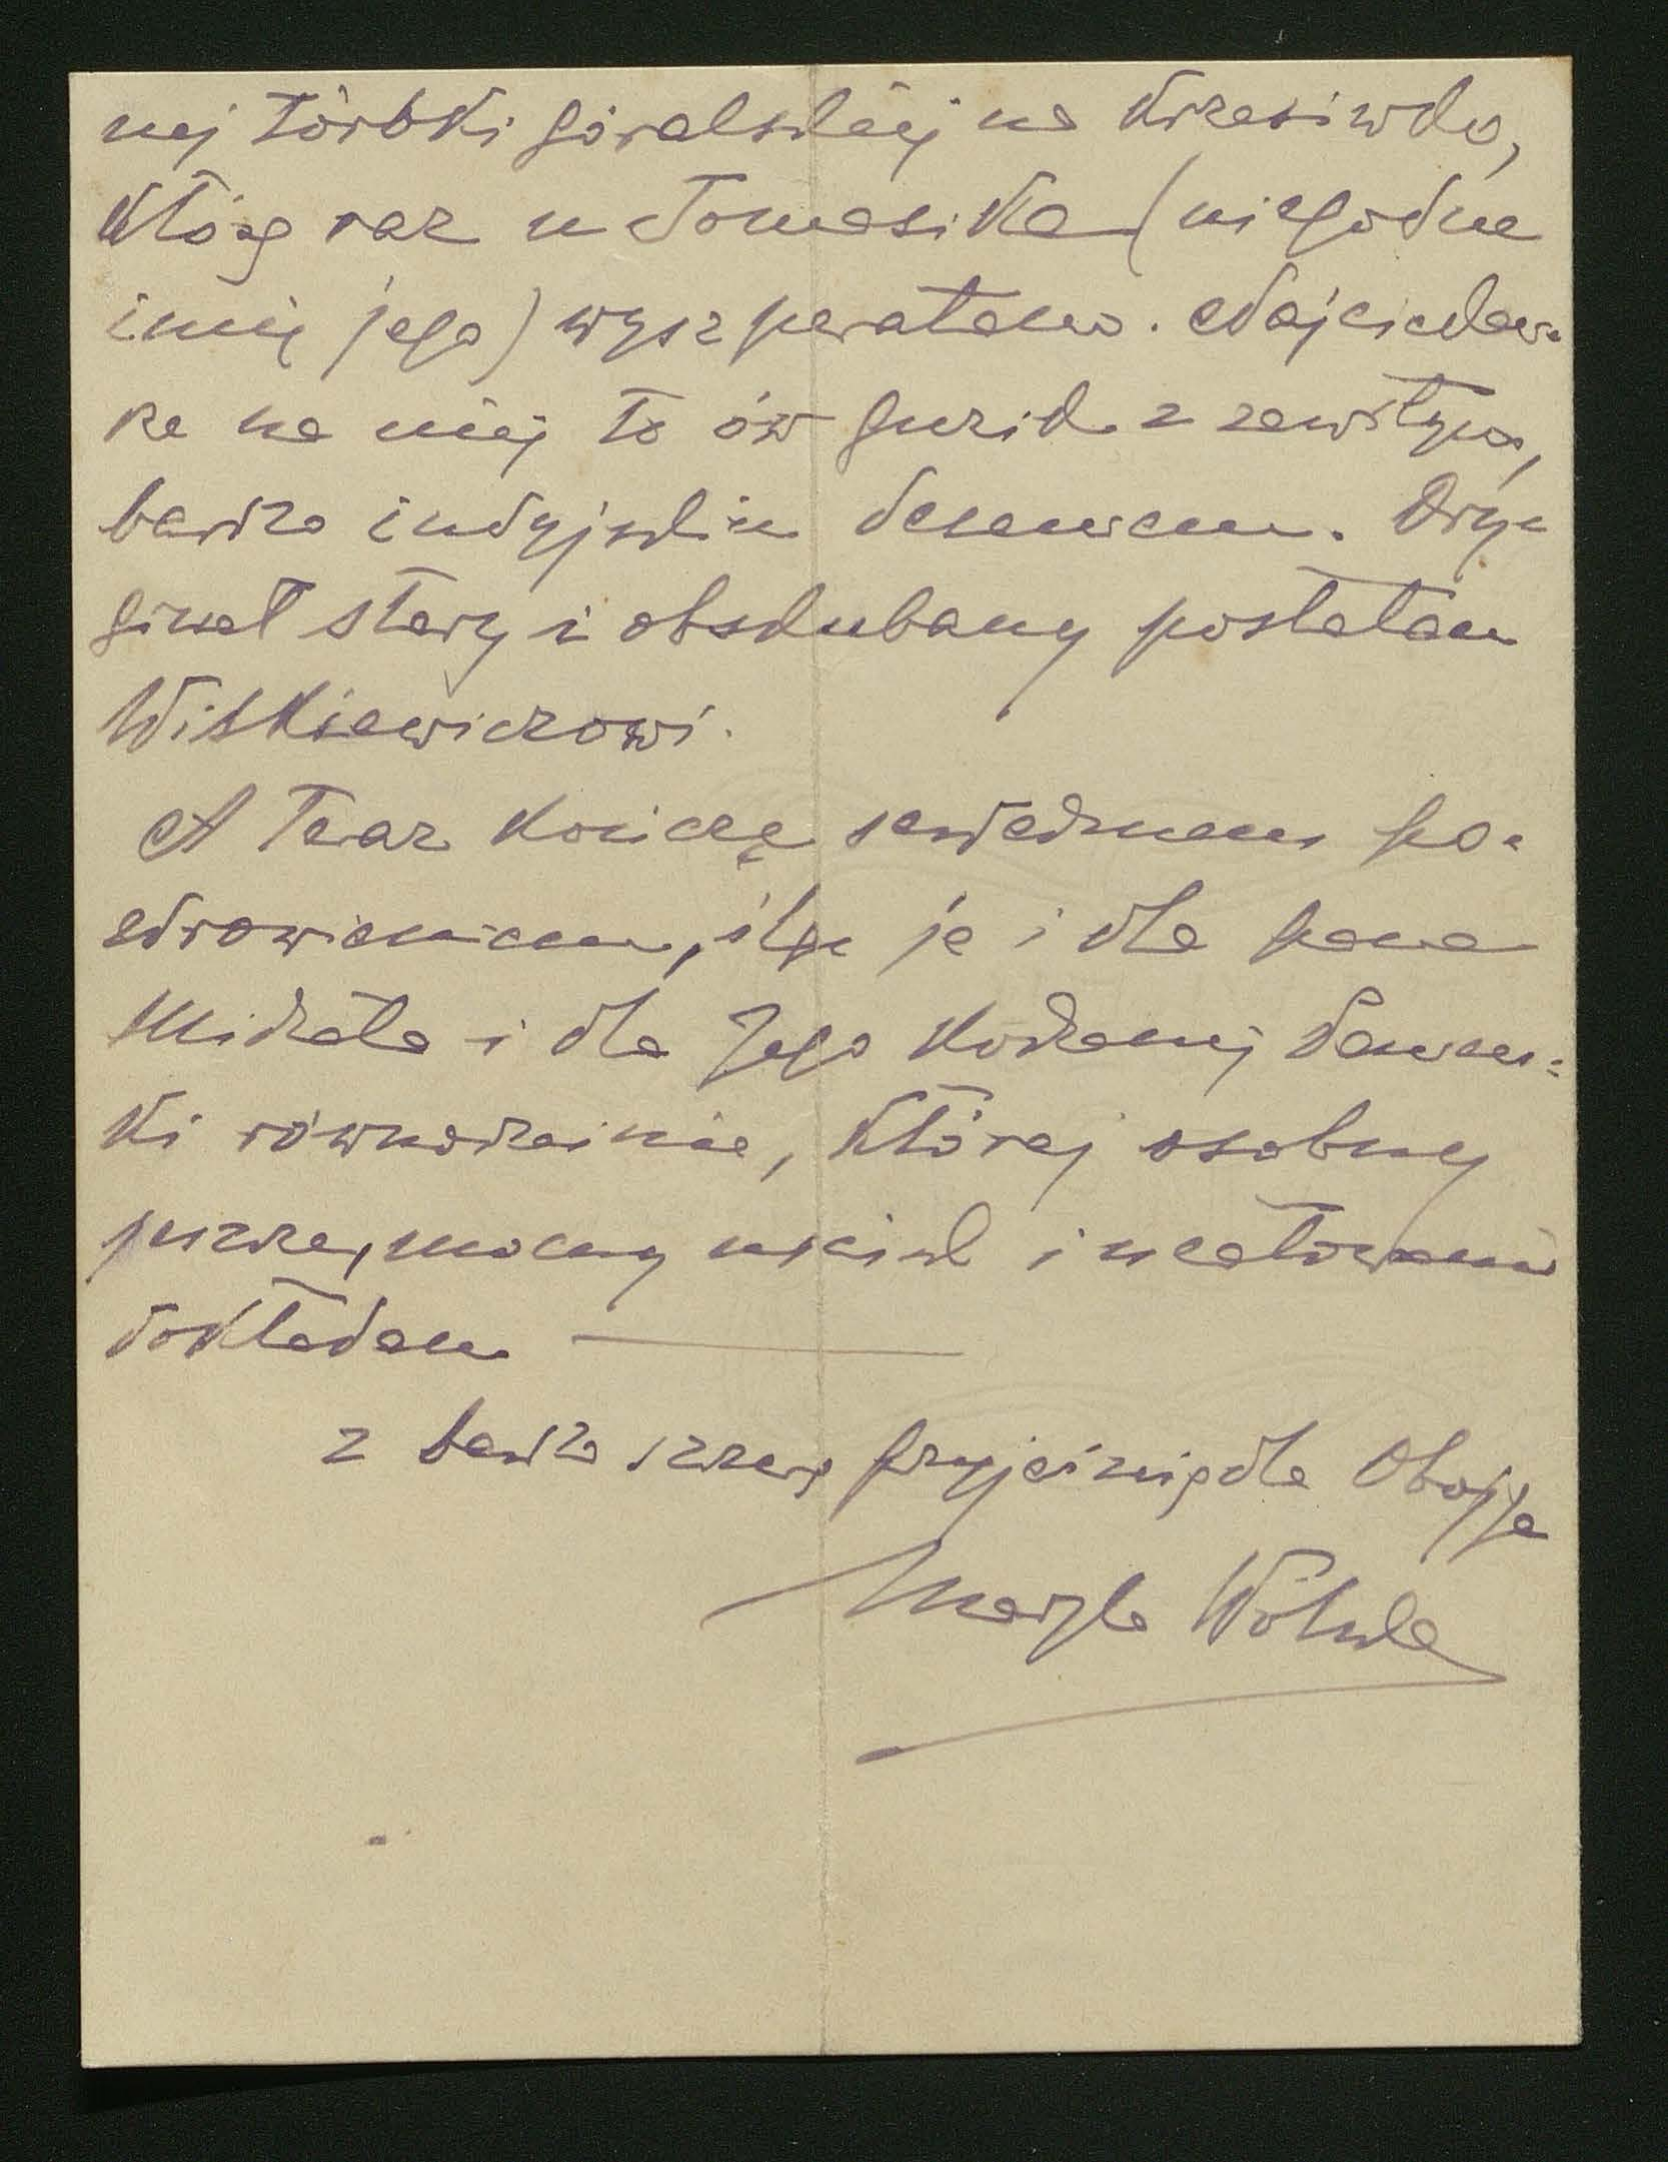 nej torbki góralskiej na krzesiwko,
którą raz u Tomasika (niegodne
imię jego) wyszperałam. Najciekaw-
sze na niej to ów guzik z zawiłym,
bardzo indyjskim deseniem. Ory-
ginał stary i obskubany posłałam
Witkiewiczowi.
A teraz kończę serdecznem po-
zdrowieniem, ślę je i dla pana
Michała i dla Jego kochanej
ki równocześnie, której osobny
jeszcze, mocny uścisk i ucałowanie
dokładam
z bardzo szczerą przyjaźnią dla Obojga
Maryla Wolska